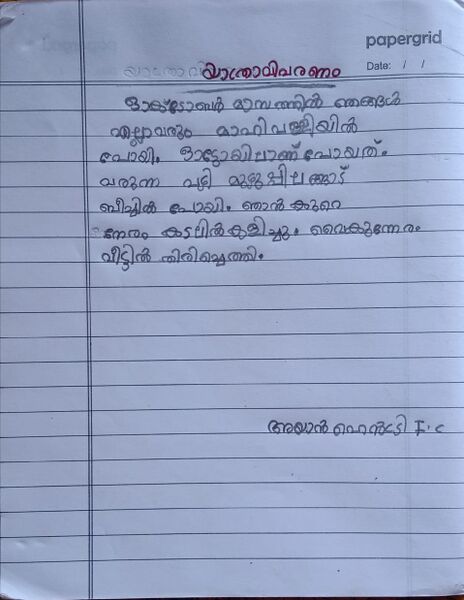 papergrid
Date: / /
യാത്രാവിവരണം
ഒക്ടോബർ മാസത്തിൽ ഞങ്ങൾ
എല്ലാവരും മാഹിപള്ളിയിൽ
പോയി. ഓട്ടോയിലാണ് പോയത്.
വരുന്ന വഴി മുഴുപ്പിലങ്ങാട്
ബീച്ചിൽ പോയി. ഞാൻ കുറെ
നേരം കടലിൽ കുളിച്ചു. വൈകുന്നേരം
വീട്ടിൽ തിരിച്ചെത്തി.
അയാൻ I.C